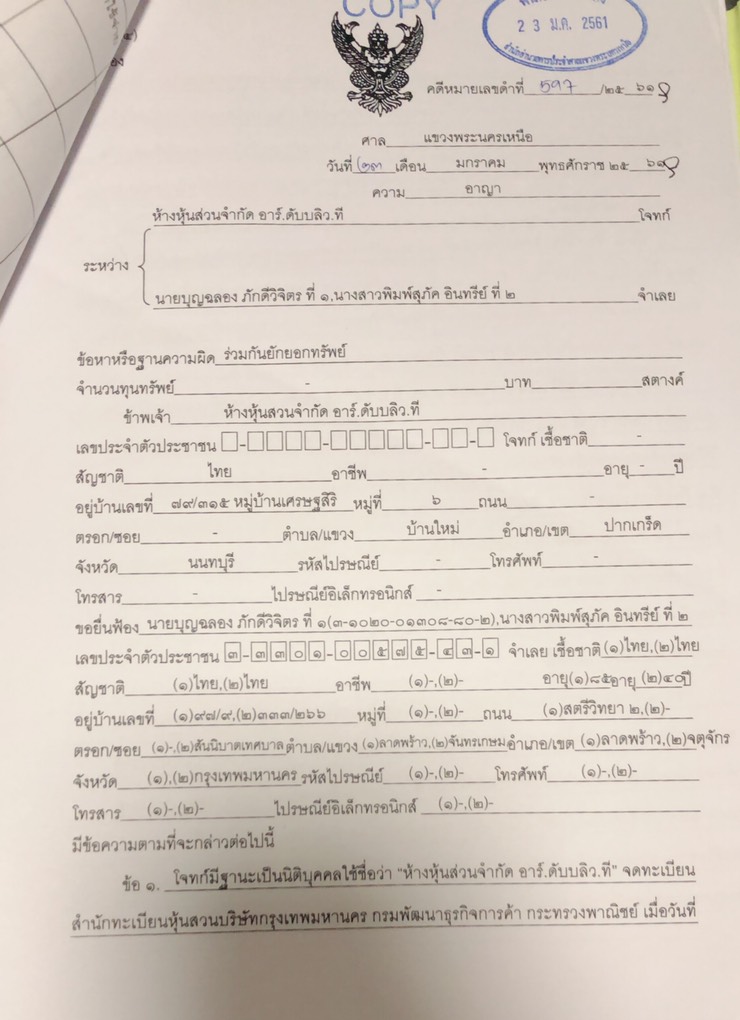 COPY
2 3 ม.ค. 2561
คดีหมายเลขดำที่ 597 /๒๕ ๖๑
ศาล แขวงพระนครเหนือ
วันที่ ๒๓ เดือน มกราคม พุทธศักราช ๒๕ ๖๑
ความ อาญา
ห้างหุ้นส่วนจำกัด อาร์.ดับบลิว.ที โจทก์
ระหว่าง
นายบุญฉลอง ภักดีวิจิตร ที่ ๑,นางสาวพิมพ์สุภัค อินทรีย์ ที่ ๒ จำเลย
ข้อหาหรือฐานความผิด ร่วมกันยักยอกทรัพย์
จำนวนทุนทรัพย์ - บาท สตางค์
ข้าพเจ้า ห้างหุ้นส่วนจำกัด อาร์.ดับบลิว.ที
เลขประจำตัวประชาชน - - - - โจทก์ เชื้อชาติ -
สัญชาติ ไทย อาชีพ - อายุ - ปี
อยู่บ้านเลขที่ ๗๙/๓๑๕ หมู่บ้านเศรษฐสิริ หมู่ที่ ๖ ถนน -
ตรอก/ซอย - ตำบล/แขวง บ้านใหม่ อำเภอ/เขต ปากเกร็ด
จังหวัด นนทบุรี รหัสไปรษณีย์ - โทรศัพท์ -
โทรสาร - ไปรษณีย์อิเล็กทรอนิกส์ -
ขอยื่นฟ้อง นายบุญฉลอง ภักดีวิจิตร ที่ ๑(๓-๑๐๒๐-๐๑๓๐๘-๘๐-๒),นางสาวพิมพ์สุภัค อินทรีย์ ที่ ๒
เลขประจำตัวประชาชน ๓-๓๓๐๑-๐๐๕๗๕-๔๓-๑ จำเลย เชื้อชาติ (๑)ไทย,(๒)ไทย
สัญชาติ (๑)ไทย,(๒)ไทย อาชีพ (๑)-,(๒)- อายุ(๑)๘๕อายุ (๒)๔๐ปี
อยู่บ้านเลขที่ (๑)๙๗/๙,(๒)๓๓๓/๒๖๖ หมู่ที่ (๑)-,(๒)- ถนน (๑)สตรีวิทยา ๒,(๒)-
ตรอก/ซอย (๑)-,(๒)สันนิบาตเทศบาล ตำบล/แขวง (๑)ลาดพร้าว,(๒)จันทรเกษม อำเภอ/เขต (๑)ลาดพร้าว,(๒)จตุจักร
จังหวัด (๑),(๒)กรุงเทพมหานคร รหัสไปรษณีย์ (๑)-,(๒)- โทรศัพท์ (๑)-,(๒)-
โทรสาร (๑)-,(๒)- ไปรษณีย์อิเล็กทรอนิกส์ (๑)-,(๒)-
มีข้อความตามที่จะกล่าวต่อไปนี้
ข้อ ๑. โจทก์มีฐานะเป็นนิติบุคคลใช้ชื่อว่า "ห้างหุ้นส่วนจำกัด อาร์.ดับบลิว.ที" จดทะเบียน
สำนักทะเบียนหุ้นส่วนบริษัทกรุงเทพมหานคร กรมพัฒนาธุรกิจการค้า กระทรวงพาณิชย์ เมื่อวันที่